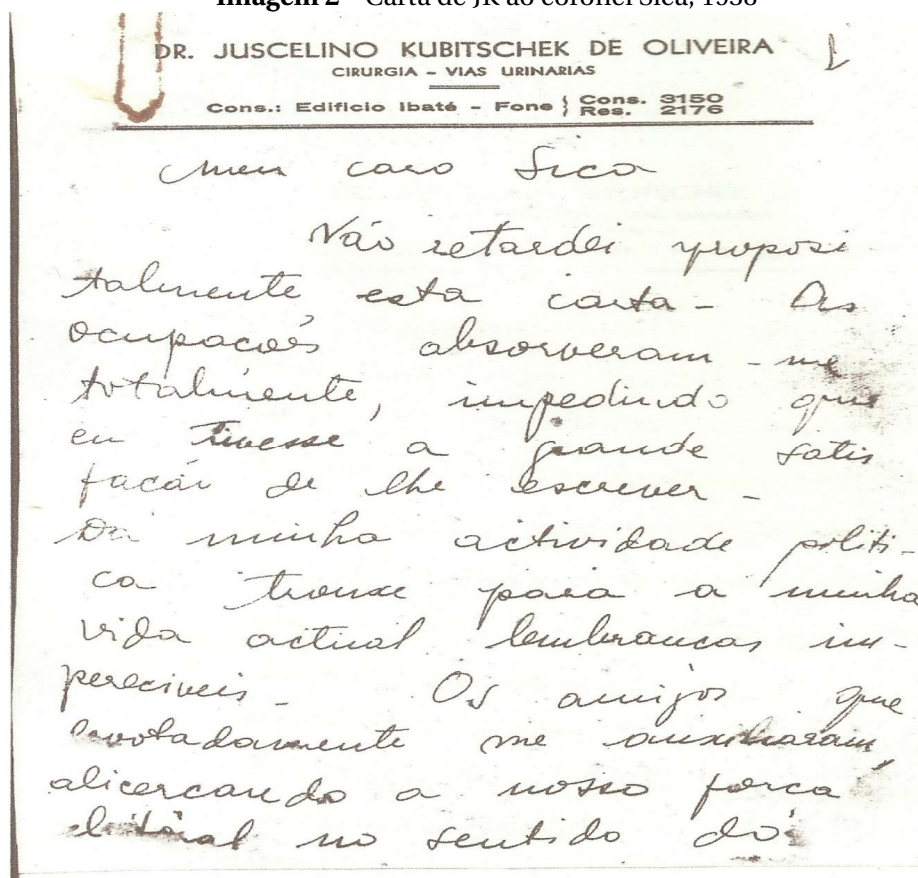 Imagem 2 – Carta de JK ao coronel Sica, 1938
DR. JUSCELINO KUBITSCHEK DE OLIVEIRA
CIRURGIA – VIAS URINARIAS
Cons.: Edificio Ibaté – Fone { Cons. 3150
Res. 2176
Meu caro Sica
Não retardei proposi
talmente esta carta – As
ocupacões absorveram-me
totalmente, impedindo que
eu tivesse a grande satis
facão de lhe escrever –
Da minha actividade politi-
ca trouxe para a minha
vida actual lembrancas im-
pereciveis – Os amigos que
devotadamente me auxiliaram,
alicercando a nossa forca
eleitoral no sentido do